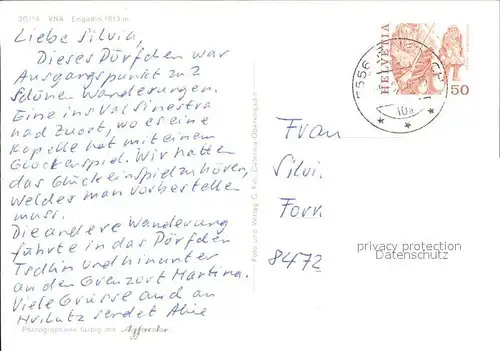 30/14 VNA Engadin 1613 m
Liebe Silvia,
Dieses Dörfchen war
Ausgangspunkt zu 2
schönen Wanderungen.
Eine ins Val Sinestra
nad Zuort, wo es eine
Kapelle hat mit einem
Glockenspiel. Wir hatten
das Glück ein Spiel zu hören,
welches man vorbestellen
muss.
Die andere Wanderung
führte in das Dörfchen
Tschlin und hinunter
an den Grenzort Martina.
Viele Grüsse auch an
sendet
Photographiere farbig mit Agfacolor
Foto und Verlag
HELVETIA
50
7556
Frau
Silvi
Forr
8472
privacy protection
OANSICHTSKARTEN.COM